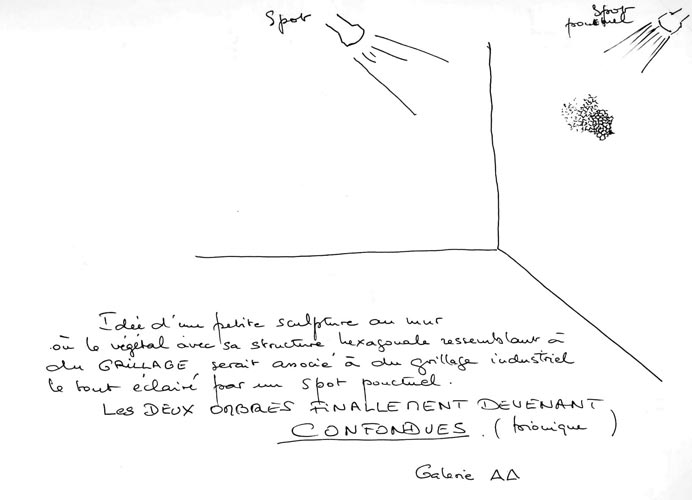 Spot
Spot
ponctuel
Idée d'une petite sculpture au mur
où le végétal avec sa structure hexagonale ressemblant à
du GRILLAGE serait associé à du grillage industriel
le tout éclairé par un spot ponctuel.
LES DEUX OMBRES FINALLEMENT DEVENANT
CONFONDUES. (bionique)
Galerie AA